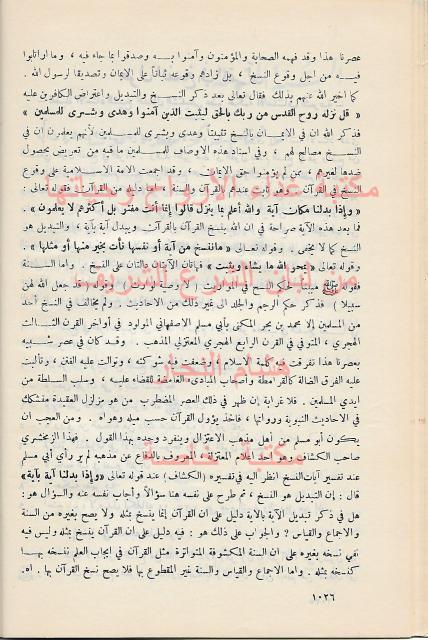 عصرنا هذا وقد فهمه الصحابة والمؤمنون وآمنوا بـه وصدقوا بما جاء فيه ، وما اوتابوا
فيـه من اجل وقوع النسخ ، بل زادهم وقوعه ثباتاً على الايمان وتصديقا لرسول الله .
كما اخبر الله عنهم بذلك فقال تعالى بعد ذكر النسخ والتبديل واعتراض الكافرين عليه
« قل نزله روح القدس من ربك بالحق ليثبت الذين آمنوا وهدى وبشرى للمسلمين »
فذكر الله ان في الايمان بالنسخ تثبيتاً وهدى وبشرى للمسلمين لأنهم يعلمون ان في
النسخ مصالح لهم ، وفي اسناد هذه الاوصاف للمسلمين مافيه من تعريض بحصول
ضدها لغيرهم ، ممن لم يؤمنوا حق الايمان . وقد اجمعت الامة الاسلامية على وقوع
النسخ في القرآن ، وهو ثابت عندهم بالقرآن والسنة ، اما دليله من القرآن ، فقوله تعالى :
« وإذا بدلنا آية مكان آية والله أعلم بما ينزل قالوا إنما أنت مفتر بل أكثرهم لا يعلمون » .
فما بعد هذه الآية صراحة في ان الله ينسخ القرآن بالقرآن ، ويبدل آية بآية ، والتبديل هو
النسخ كما لا يخفى . وقوله تعالى « ماننسخ من آية أو ننسها نأت بخير منها أو مثلها » .
وقوله تعالى « يمحو الله ما يشاء ويثبت » فهاتان الآيتان دالتان على النسخ . واما السنة
فقوله ﷺ مبيناً لحكم النسخ في المواريث ( لا وصية لوارث ) وقوله ( قد جعل الله لهن
سبيلا ) فذكر حكم الرجم والجلد الى غير ذلك من الاحاديث . ولم يخالف في النسخ أحد
من المسلمين إلا محمد بن بحر المكنى بأبي مسلم الاصفهاني المولود في أواخر القرن الثالث
الهجري ، المتوفي في القرن الرابع الهجري المعتزلي المذهب . وقد كان في عصر شبيه
بعصرنا هذا تفرقت فيه كلمة الاسلام ، وضعفت فيه شوكته ، وتوالت عليه الفتن ، وتألبت
عليه الفرق الضالة كالقرامطة وأصحاب المبادىء الغامضة للقضاء عليه ، وسلب السلطة من
ايدي المسلمين . فلا غرابة إن ظهر في ذلك العصر المضطرب من هو مزلزل العقيدة فمتشكك
في الاحاديث النبوية ورواتها ، فأخذ يؤول القرآن حسب ميله وهواه . ومن العجب ان
يكون أبو مسلم من أهل مذهب الاعتزال وينفرد وحده بهذا القول . فهذا الزمخشري
صاحب الكشاف وهو احد اعلام المعتزلة ، المعروف بالدفاع عن مذهبه لم ير رأي أبي مسلم
عند تفسير آيات النسخ انظر اليه في تفسيره ( الكشاف ) عند قوله تعالى « وإذا بدلنا آية بآية »
قال : إن التبديل هو النسخ ، ثم طرح على نفسه هنا سؤالاً وأجاب نفسه عنه والسؤال هو :
هل في ذكر تبديل الآية بالآية دليل على ان القرآن إنما ينسخ بمثله ولا يصح بغيره من السنة
والاجماع والقياس ؟ والجواب على ذلك هو : فيه دليل على ان القرآن ينسخ بمثله وليس فيه
نفي نسخه بغيره على ان السنة المكشوفة المتواترة مثل القرآن في ايجاب العلم فنسخه بهـا
كنسخه بمثله . واما الاجماع والقياس والسنة غير المقطوع بها فلا يصح نسخ القرآن بها . اه .
١٠٢٦
مكتبة علوم الأرواح وهيئتها
من لبنان الشرع الشريف
هشام النجار
مكتبة خاصة